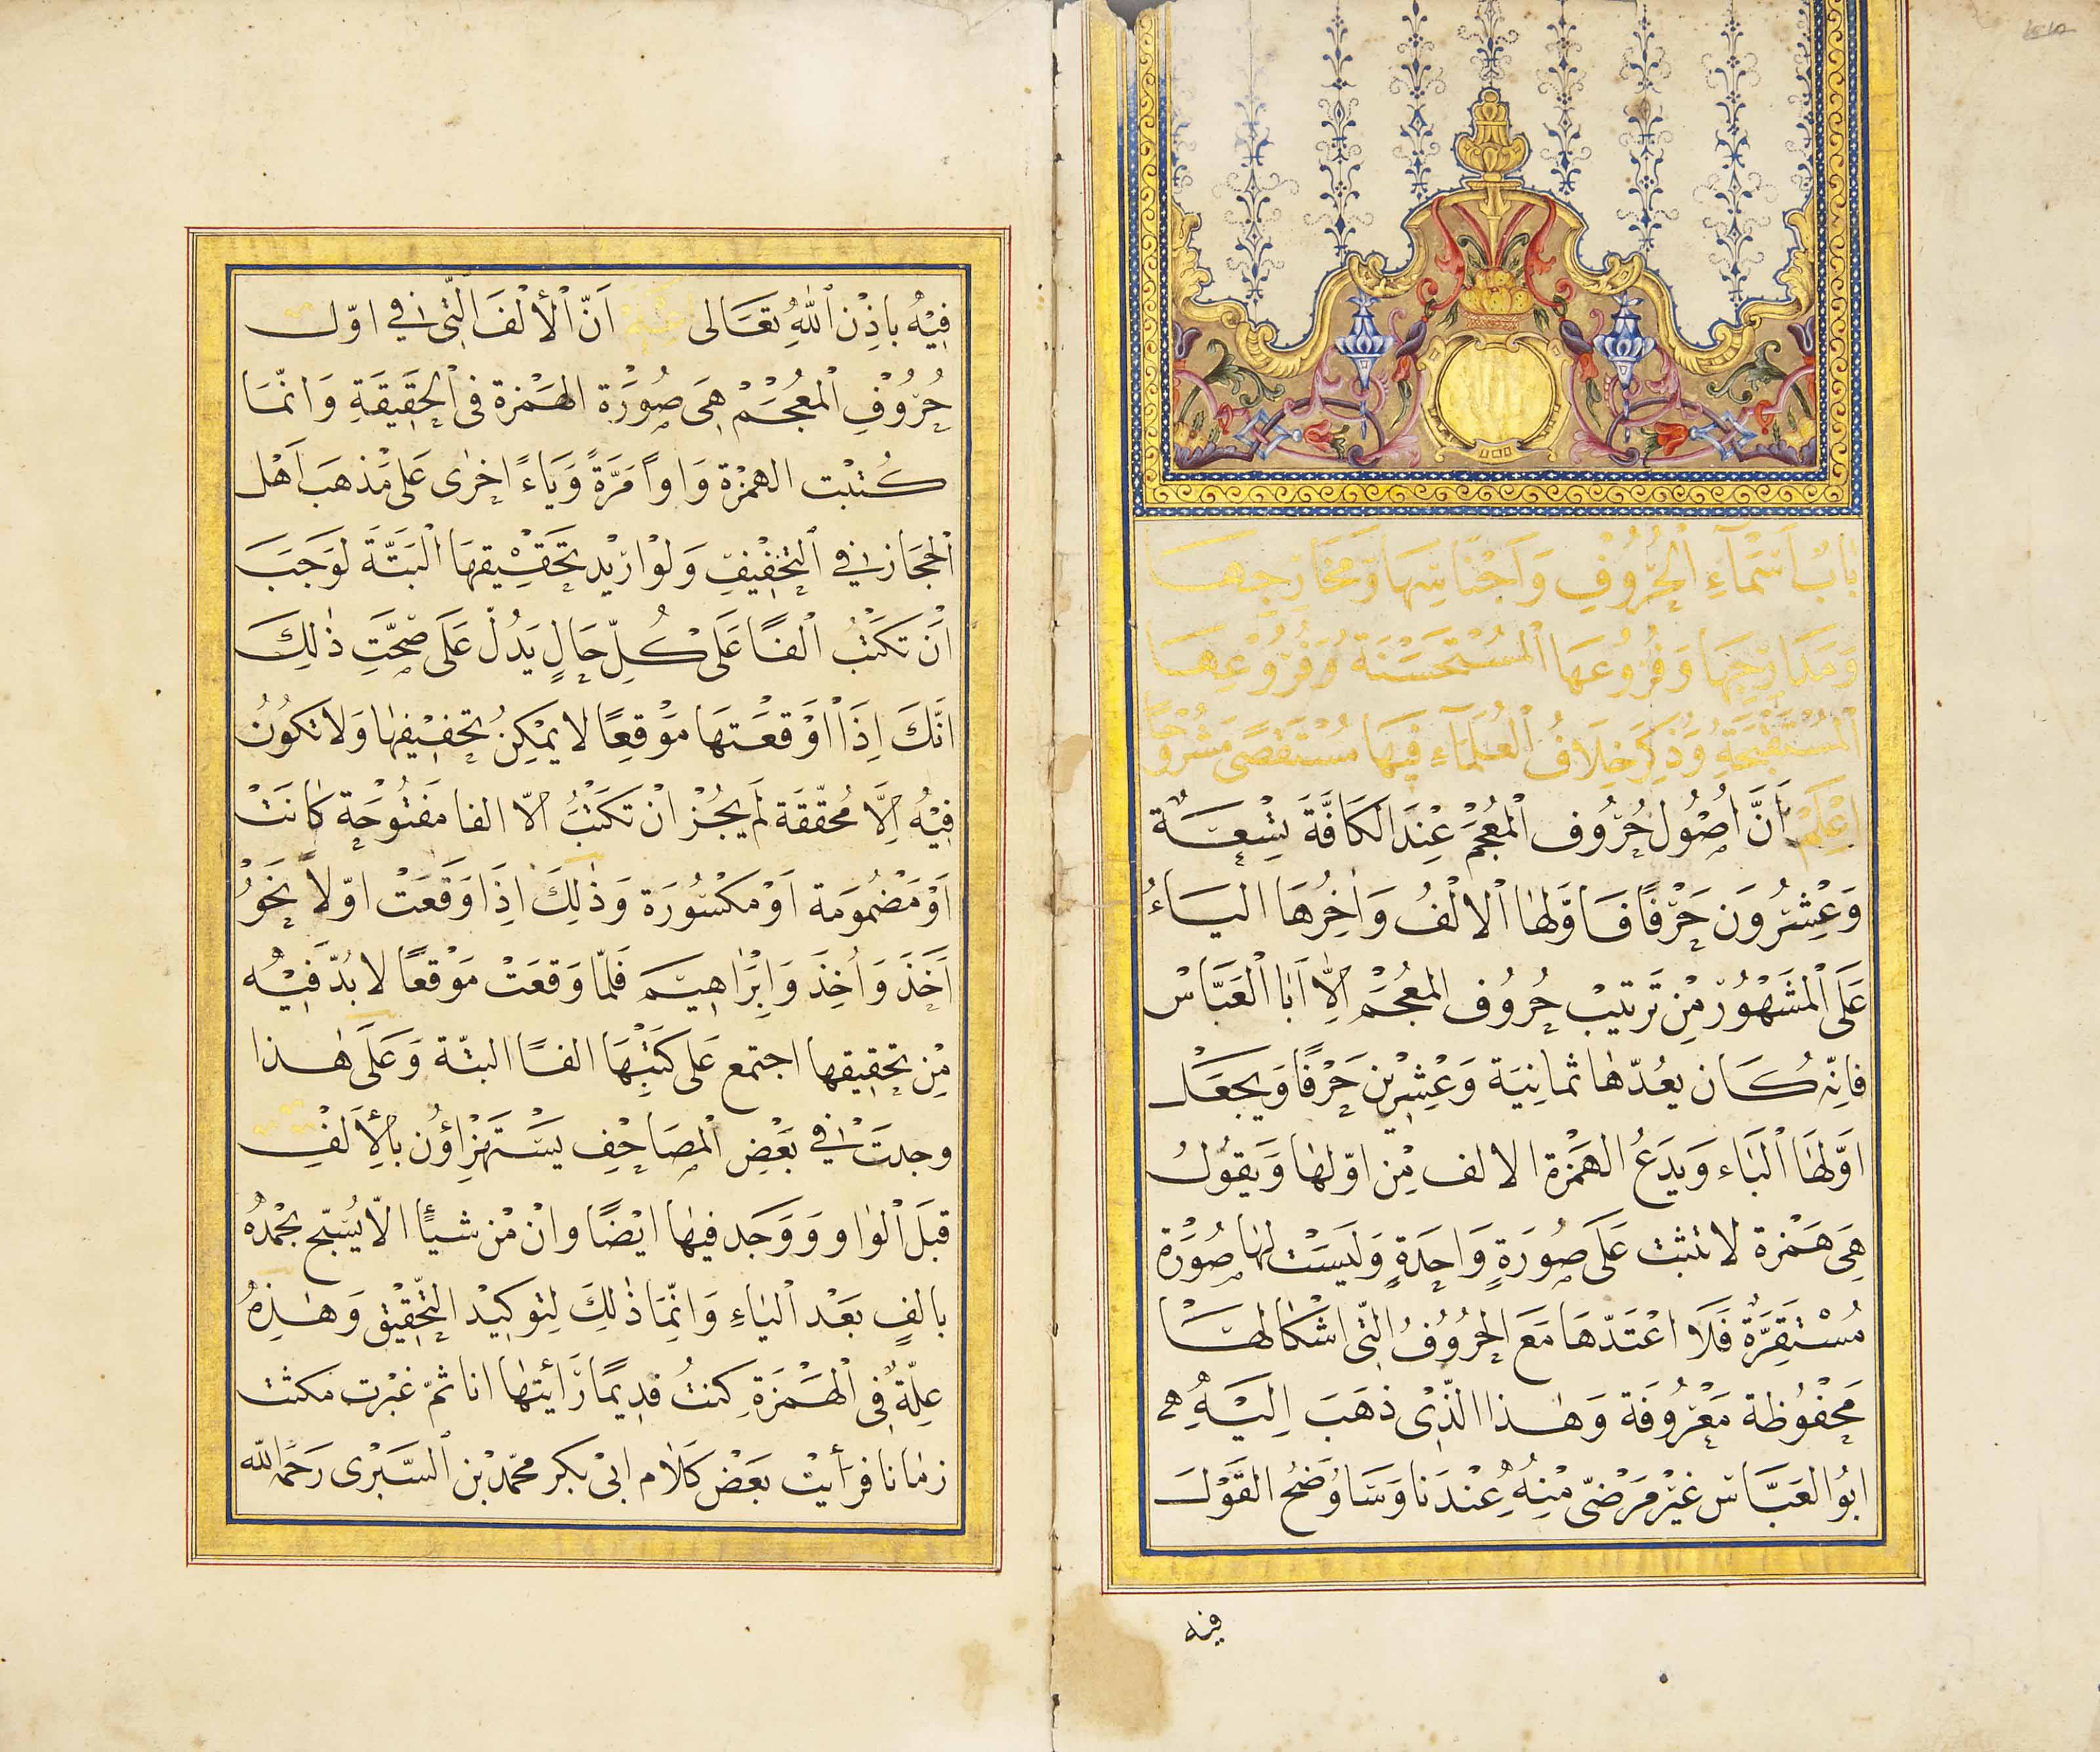 بَابُ اَسْمَآءِ الْحُرُوْفِ وَاَجْنَاسِهَا وَمَخَارِجِهَا
وَمَدَارِجِهَا وَفُرُوْعِهَا الْمُسْتَحْسَنَةُ وَفُرُوْعِهَا
الْمُسْتَقْبَحَةُ وَذِكْرِ خِلَافُ الْعُلَمَآءِ فِيْهَا مُسْتَقْصًى مَشْرُوْحًا
اِعْلَمْ اَنَّ اُصُوْل حُرُوف الْمُعْجَمْ عِنْدَ الكَافَّةَ تِسْعَةٌ
وَعِشْرُونَ حَرْفًا فَاَوَّلهَا الْالْفُ وَاٰخِرُهَا اليَاءُ
عَلَى الْمَشْهُوْرْ مِنْ تَرتيبْ حُرُوف المعْجَمْ اِلّا اَبَا الْعَبَّاسْ
فانّه كَان يعُدّها ثمانِيَة وَعِشرِين حَرْفًا وَيجعَل
اوّلهَا الْبَاء وَيدَعُ الهَمْزة الالف مِن اوّلهَا وَيقوُل
هِىَ هَمْزة لا تثبت عَلَى صُورَةٍ وَاحِدَةٍ وَليَسَتْ لهَا صُوْرَة
مُسْتَقِرَّةٌ فَلَا اعْتَدّهَا مَعَ الحُرُوْفُ الّتى اشْكَالهَا
مَحْفُوْظة مَعْرُوفَة وَهٰذا الّذِىْ ذهَبَ اِليَهِ
ابُو العَبَّاسْ غيْر مَرْضىّ مْنِهُ عِنْدَنا وَسَاوُضحُ القَوْلَ
فيه
فِيْهُ بِاذِنْ اللهِ تعَالى اعْلَمْ اَنّ الْألْفَ الّتِى فى اوّل
حُرُوْفِ الْمعُجَمْ هِىَ صُوْرَة الهَمْزة فى الْحَقِيقَةِ وَانّمَا
كُتبْت الهمْزة وَاوًا مَرَّةً وَيَاءً اخرٰى عَلىٰ مَذهَب اَهْل
الْحجَاز فى التخَفْيْفِ وَلوْ اريْد تَحَقِيْقهَا البَتَّةَ لوَجَبَ
اَنْ تكَتْبُ الفًا عَلَى كُلِّ حَالٍ يَدُلّ عَلَى صْحَّتِ ذٰلِكَ
انّكَ اِذَا اوْقعَتهَا مَوْقِعًا لا يمْكِنُ تخفيْفِهَا وَلا تكَوُنُ
فِيْهُ اِلَّا مُحقّقَة لَم يجُزْ انْ تكَتْبُ الّا الفا مَفتُوْحَة كانَتْ
اَوْ مَضْمُوَمة اَوْ مَكسْوُرَة وَذٰلِكَ اِذَا وَقَعَتْ اوّلاً نحَوْ
اَخَذَ وَاُخِذَ وَاِبْرَاهيَم فَلمّا وَقعَتْ مَوْقعًا لا بُدّ فِيْهُ
مِنْ تحَقِيقهَا اجتمع عَلى كتَبِْهَا الفًا البتّة وَعَلَى هٰذا
وجدتَ فى بَعْضِ الْمصَاحِف يَسْتَهزِاؤُن بالْألِفْ
قبَلَ الْوٰاو وَوَجَد فيهَا ايْضًا وانْ مْن شيأً الّا يُسّبحِ بحمْدُه
بالفٍ بَعْد الْيَاءِ وَانّمَا ذٰلِكَ لِتوكِيْد التّحْقِيْق وَهٰذِهُ
عِلّةٌ فى الْهَمْزَةِ كنتُ قدِيمًا رَأيتهَا انا ثمّ غبْرت مكثت
زمَانا فرأيتْ بعَضْ كَلَام ابىْ بكر محمّد بْن السَّبْرى رَحمَهُ اللّه